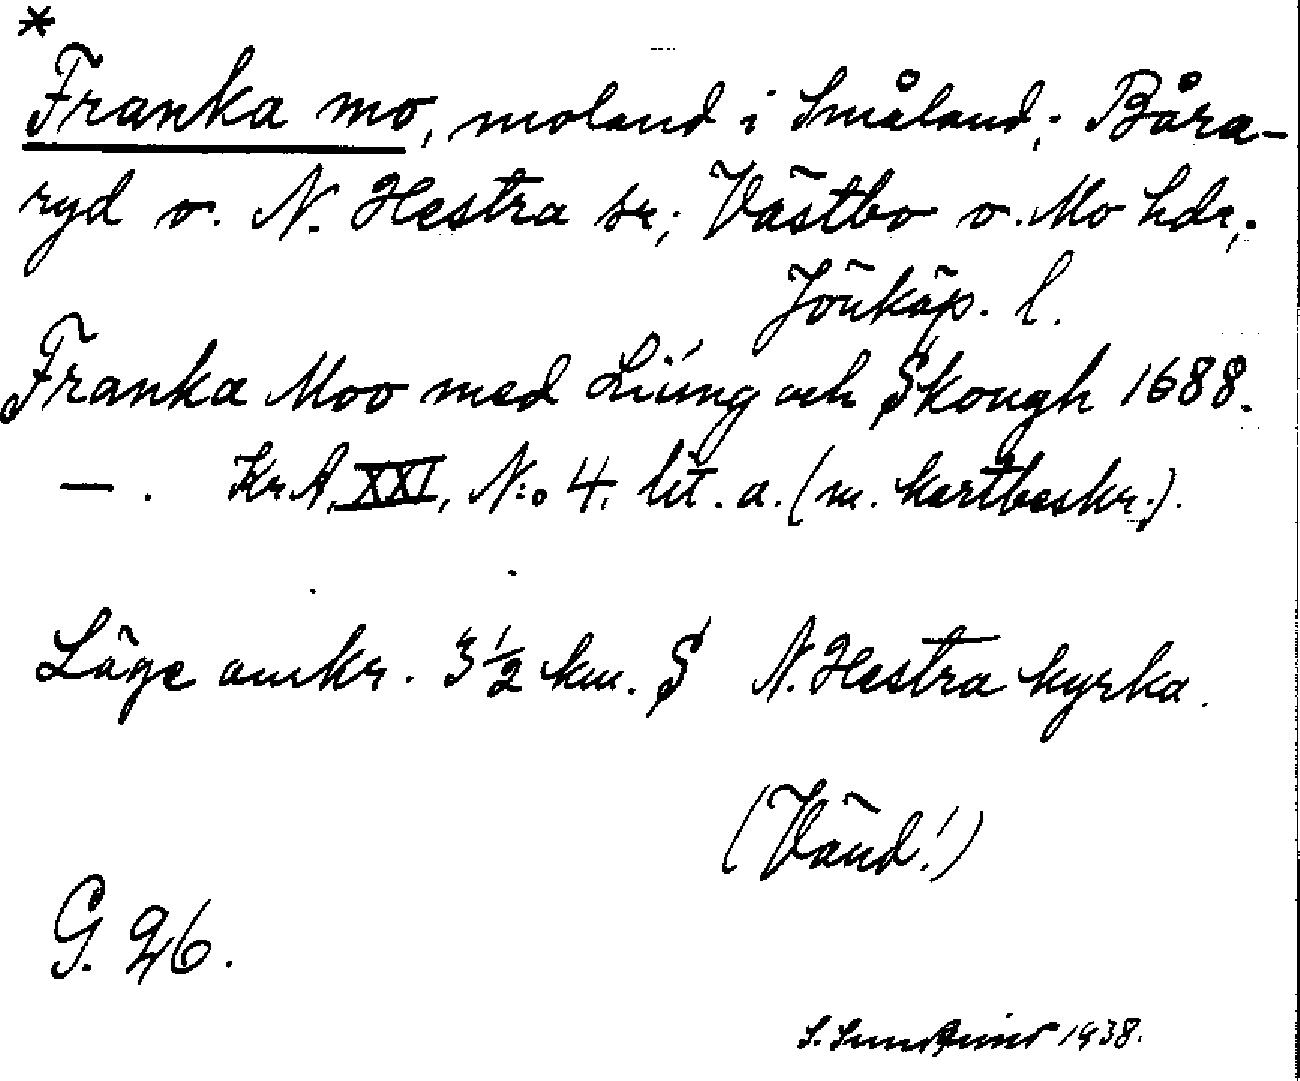 *
Franka mo, moland i Småland; Båra-
ryd o. N. Hestra sr; Västbo o. Mo hdr;
Jönköp. l.
Franka Moo med Liúng och Skough 1688.
—. Kr.A. XXI, N:o 4. lit. a. (m. kartbeskr.).
Läge omkr. 3½ km. S N. Hestra kyrka.
(Vänd!)
G. 26.
S. 1938.